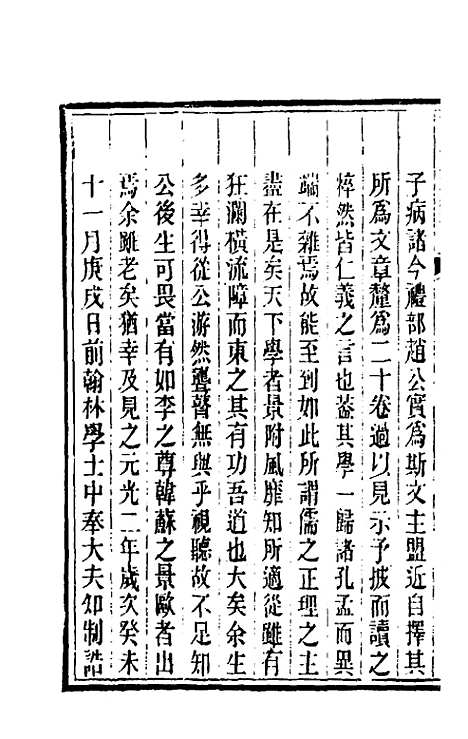 子病諸今禮部趙公實爲斯文主盟近自擇其
所爲文章釐爲二十卷過以見示予披而讀之
粹然皆仁義之言也葢其學一歸諸孔孟而異
端不雜焉故能至到如此所謂儒之正理之主
盡在是矣天下學者景附風靡知所適從雖有
狂瀾橫流障而東之其有功吾道也大矣余生
多幸得從公游然聾瞽無與乎視聽故不足知
公後生可畏當有如李之尊韓蘇之景歐者出
焉余雖老矣猶幸及見之元光二年歲次癸未
十一月庚戌日前翰林學士中奉大夫知制誥